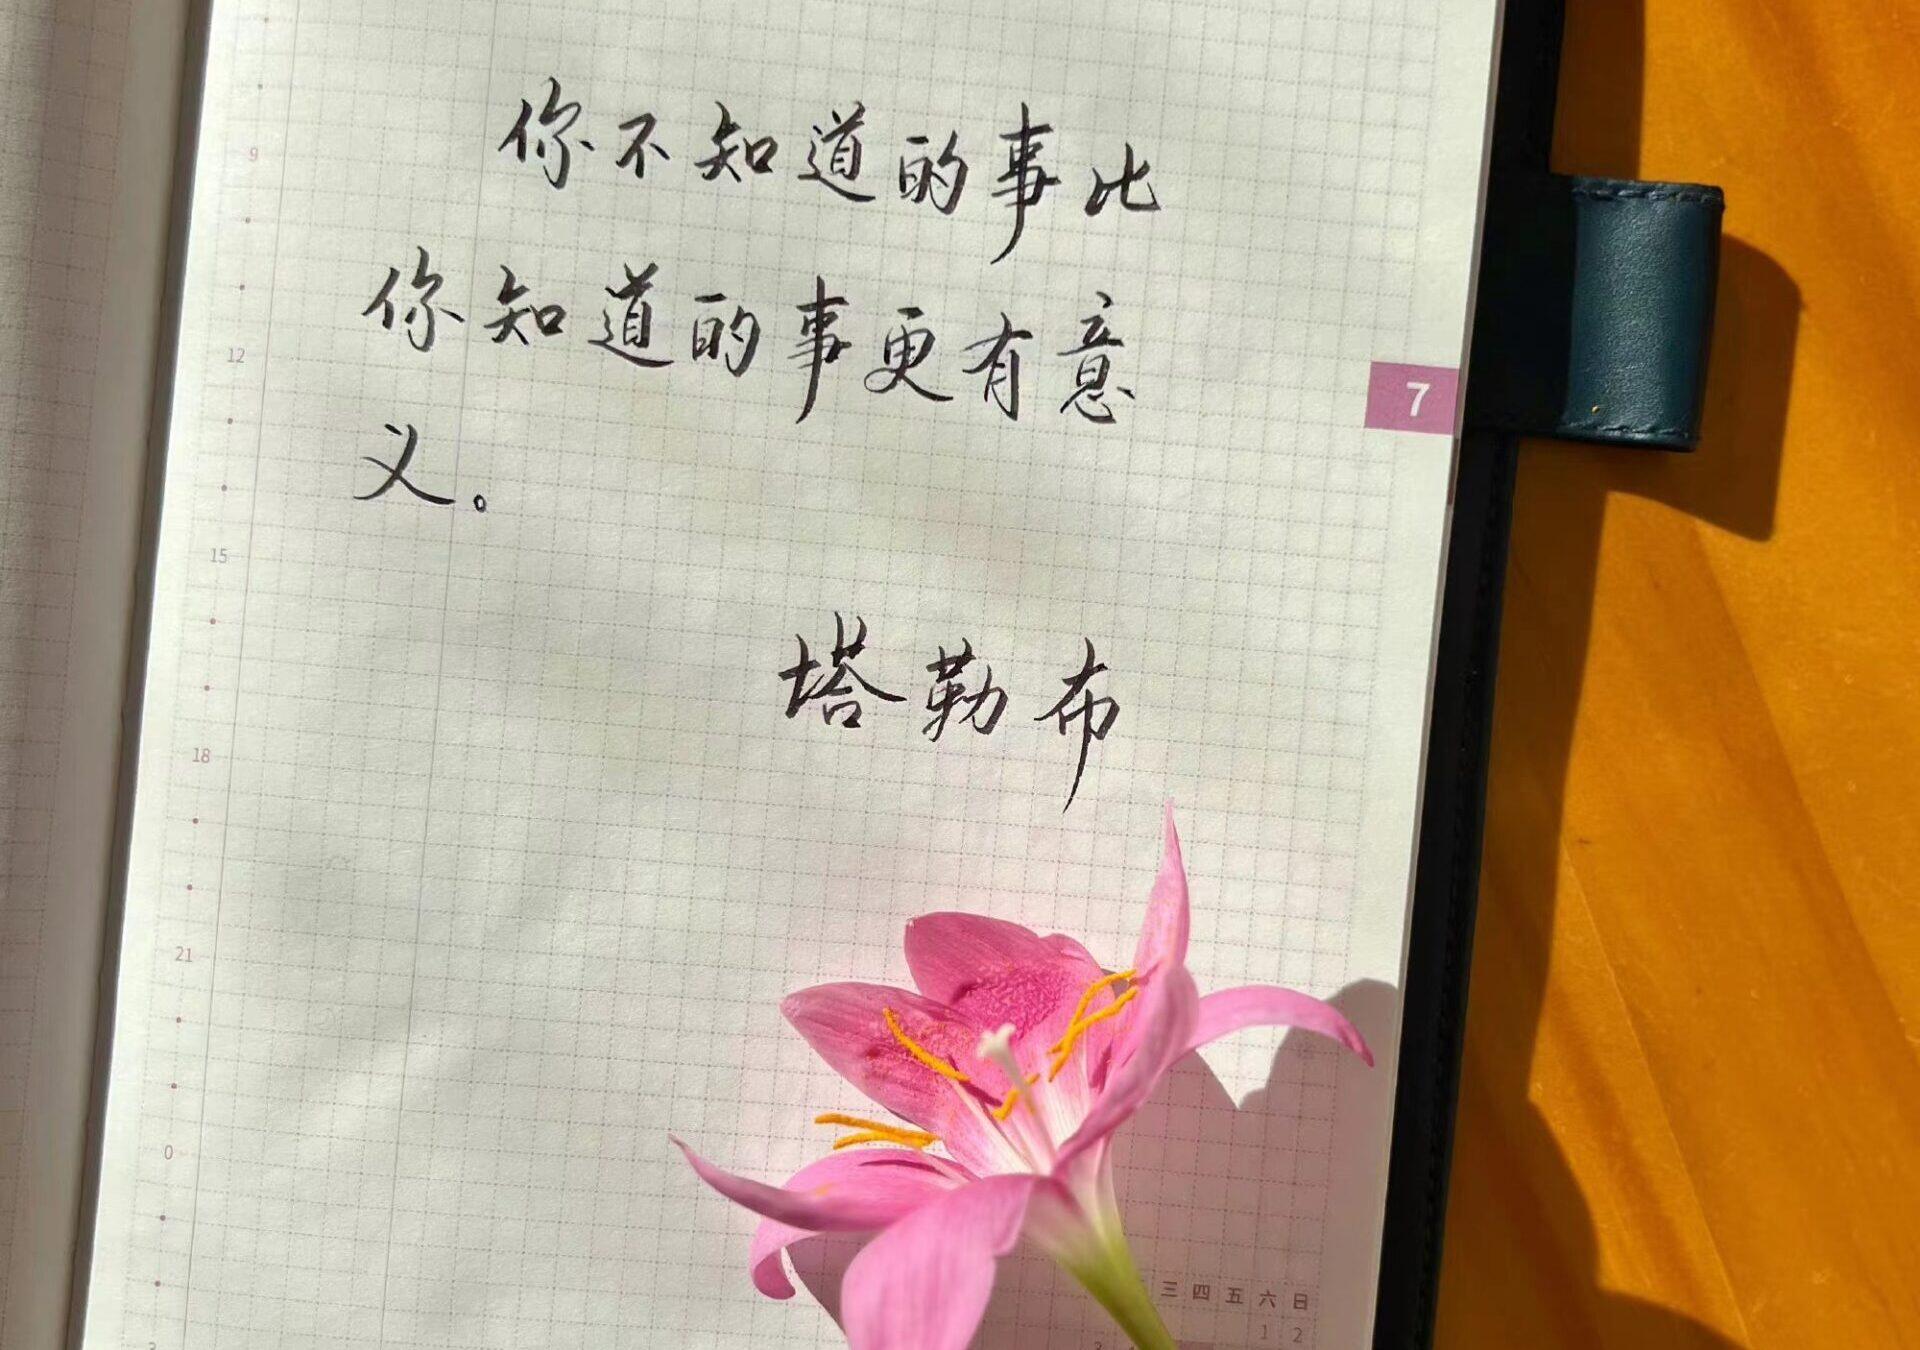 你不知道的事比
你知道的事更有意
义。
塔勒布
7
9
12
15
18
21
0
三 四 五 六 日
1 2